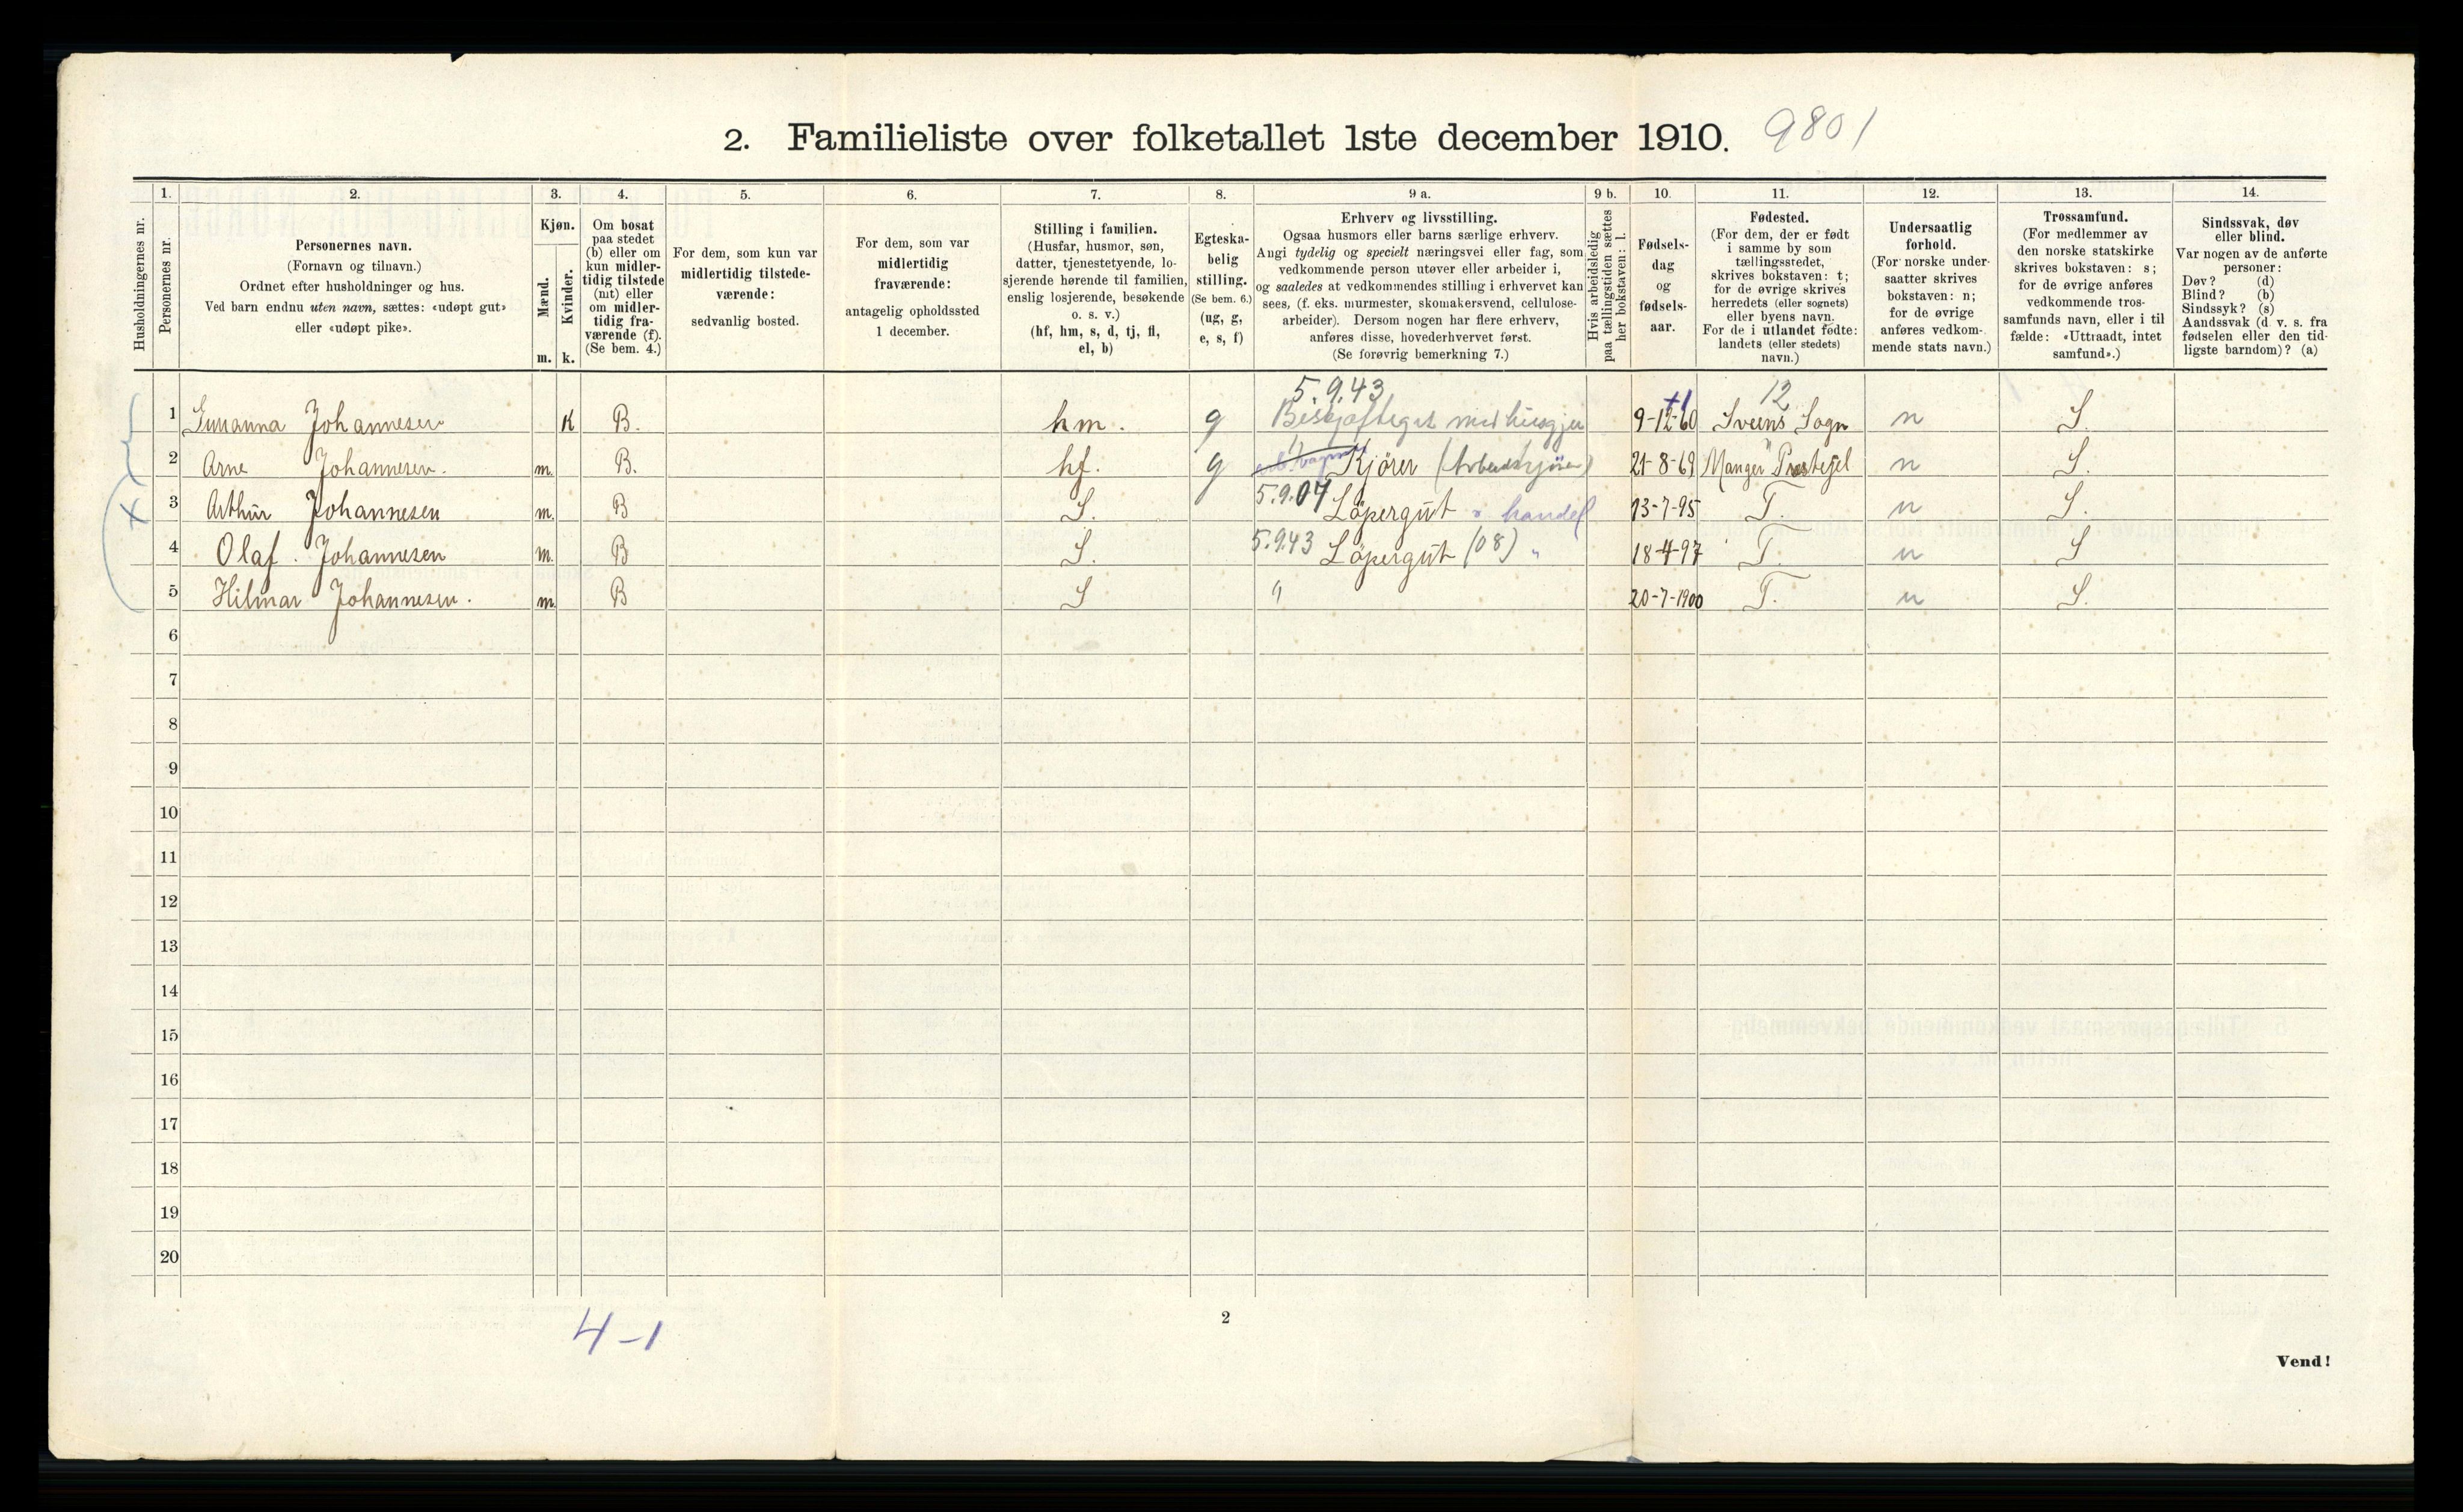 2. Familieliste over folketallet 1ste december 1910. 9801
1. 2. 3. 4. 5. 6. 7. 8. 9 a. 9 b. 10. 11. 12. 13. 14.
Husholdningernes nr.
Personernes nr.
Personernes navn.
(Fornavn og tilnavn.)
Ordnet efter husholdninger og hus.
Ved barn endnu uten navn, sættes: «udøpt gut»
eller «udøpt pike».
Kjøn.
Mænd.
Kvinder.
m. k.
Om bosat
paa stedet
(b) eller om
kun midler-
tidig tilstede
(mt) eller
om midler-
tidig fra-
værende (f).
(Se bem. 4.)
For dem, som kun var
midlertidig tilstede-
værende:
sedvanlig bosted.
For dem, som var
midlertidig
fraværende:
antagelig opholdssted
1 december.
Stilling i familien.
(Husfar, husmor, søn,
datter, tjenestetyende, lo-
sjerende hørende til familien,
enslig losjerende, besøkende
o. s. v.)
(hf, hm, s, d, tj, fl,
el, b)
Egteska-
belig
stilling.
(Se bem. 6.)
(ug, g,
e, s, f)
Erhverv og livsstilling.
Ogsaa husmors eller barns særlige erhverv.
Angi tydelig og specielt næringsvei eller fag, som
vedkommende person utøver eller arbeider i,
og saaledes at vedkommendes stilling i erhvervet kan
sees, (f. eks. murmester, skomakersvend, cellulose-
arbeider). Dersom nogen har flere erhverv,
anføres disse, hovederhvervet først.
(Se forøvrig bemerkning 7.)
Hvis arbeidsledig
paa tællingstiden sættes
her bokstaven: l.
Fødsels-
dag
og
fødsels-
aar.
Fødested.
(For dem, der er født
i samme by som
tællingsstedet,
skrives bokstaven: t;
for de øvrige skrives
herredets (eller sognets)
eller byens navn.
For de i utlandet fødte:
landets (eller stedets)
navn.)
Undersaatlig
forhold.
(For norske under-
saatter skrives
bokstaven: n;
for de øvrige
anføres vedkom-
mende stats navn.)
Trossamfund.
(For medlemmer av
den norske statskirke
skrives bokstaven: s;
for de øvrige anføres
vedkommende tros-
samfunds navn, eller i til
fælde: «Uttraadt, intet
samfund».)
Sindssvak, døv
eller blind.
Var nogen av de anførte
personer:
Døv? (d)
Blind? (b)
Sindssyk? (s)
Aandssvak (d. v. s. fra
fødselen eller den tid-
ligste barndom)? (a)
5.9.43 12
1 Johannesen K B. hm. g 9-12-60 Sveens Sogn n S.
2 Arne Johannesen. m. B. hf. g Kjörer (Arbeidskjörer) 21-8-69 Manger Prestejel n S.
3 Arthur Johannesen m. B S. 5.9.04 Löpergut i handel 13-7-95 T. n S.
4 Olaf. Johannesen m. B S. 5.9.43 Löpergut (08) " 18-4-97 T. n S
5 Hilmar Johannesen. m. B S " 20-7-1900 T. n S.
6
7
8
9
10
11
12
13
14
15
16
17
18
19
20
4-1
2
Vend!